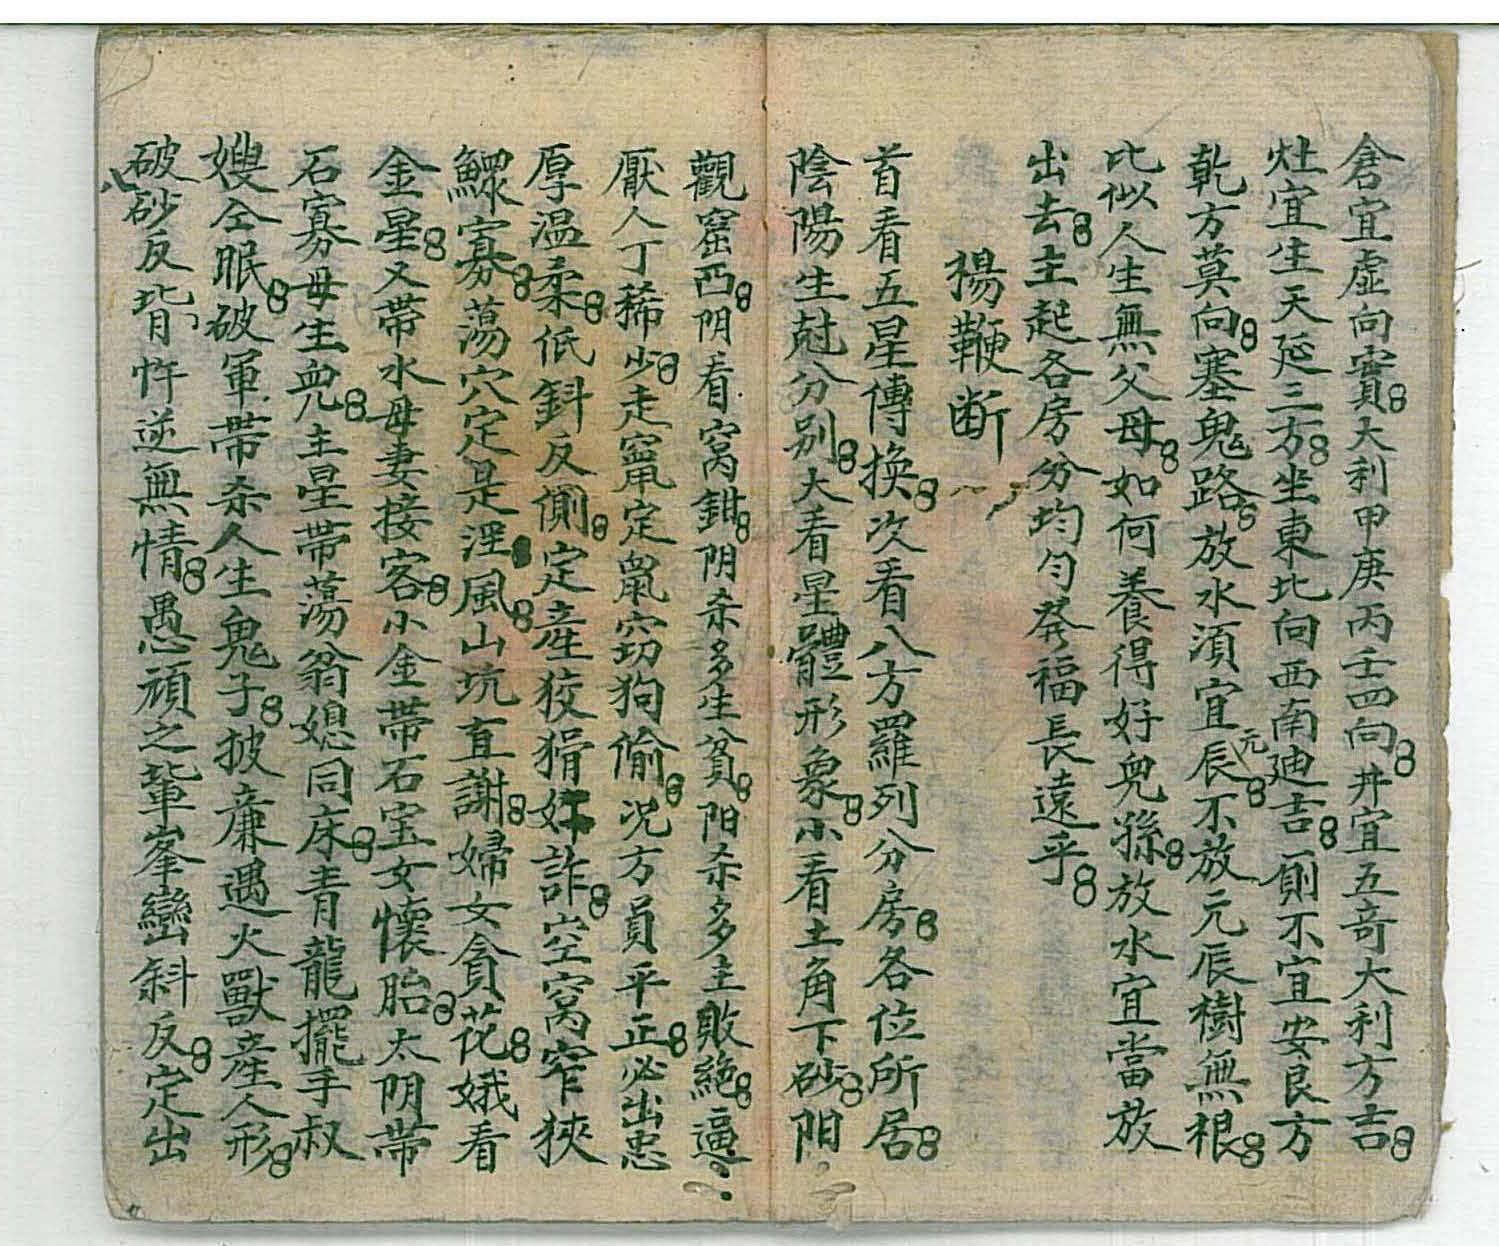 倉宜虛向實大利甲庚丙壬四向井宜五奇大利方吉
灶宜生天延三方坐東北向西南廸吉則不宜安艮方
乾方莫向塞鬼路放水須宜元辰不放元辰樹無根
比似人生無父母如何養得好兒孫放水宜當放
出去主起各房分均勻發福長遠乎
揚鞭断
首看五星傳換次看八方羅列分房各位所居
陰陽生尅分別大看星體形象小看土角下砂阳
觀窟西阴看窩鉗阴杀多生貧阳杀多主敗絕逼〻
厭人丁稀少走竄定鼠穴窃狗偷况方員平正必出忠
厚温柔低斜反側定産狡猾奸詐空窩窄狹
鰥寡蕩穴定是淫風山坑直謝婦女貪花娥看
金星又帶水母妻接客小金帶石宝女懷胎太阴帶
石寡母生兒主星帶蕩翁媳同床青龍擺手叔
嫂仝眠破軍帶杀人生鬼子披亷遇火獸産人形
破砂反背忤逆無情愚頑之輩峯巒斜反定出
八